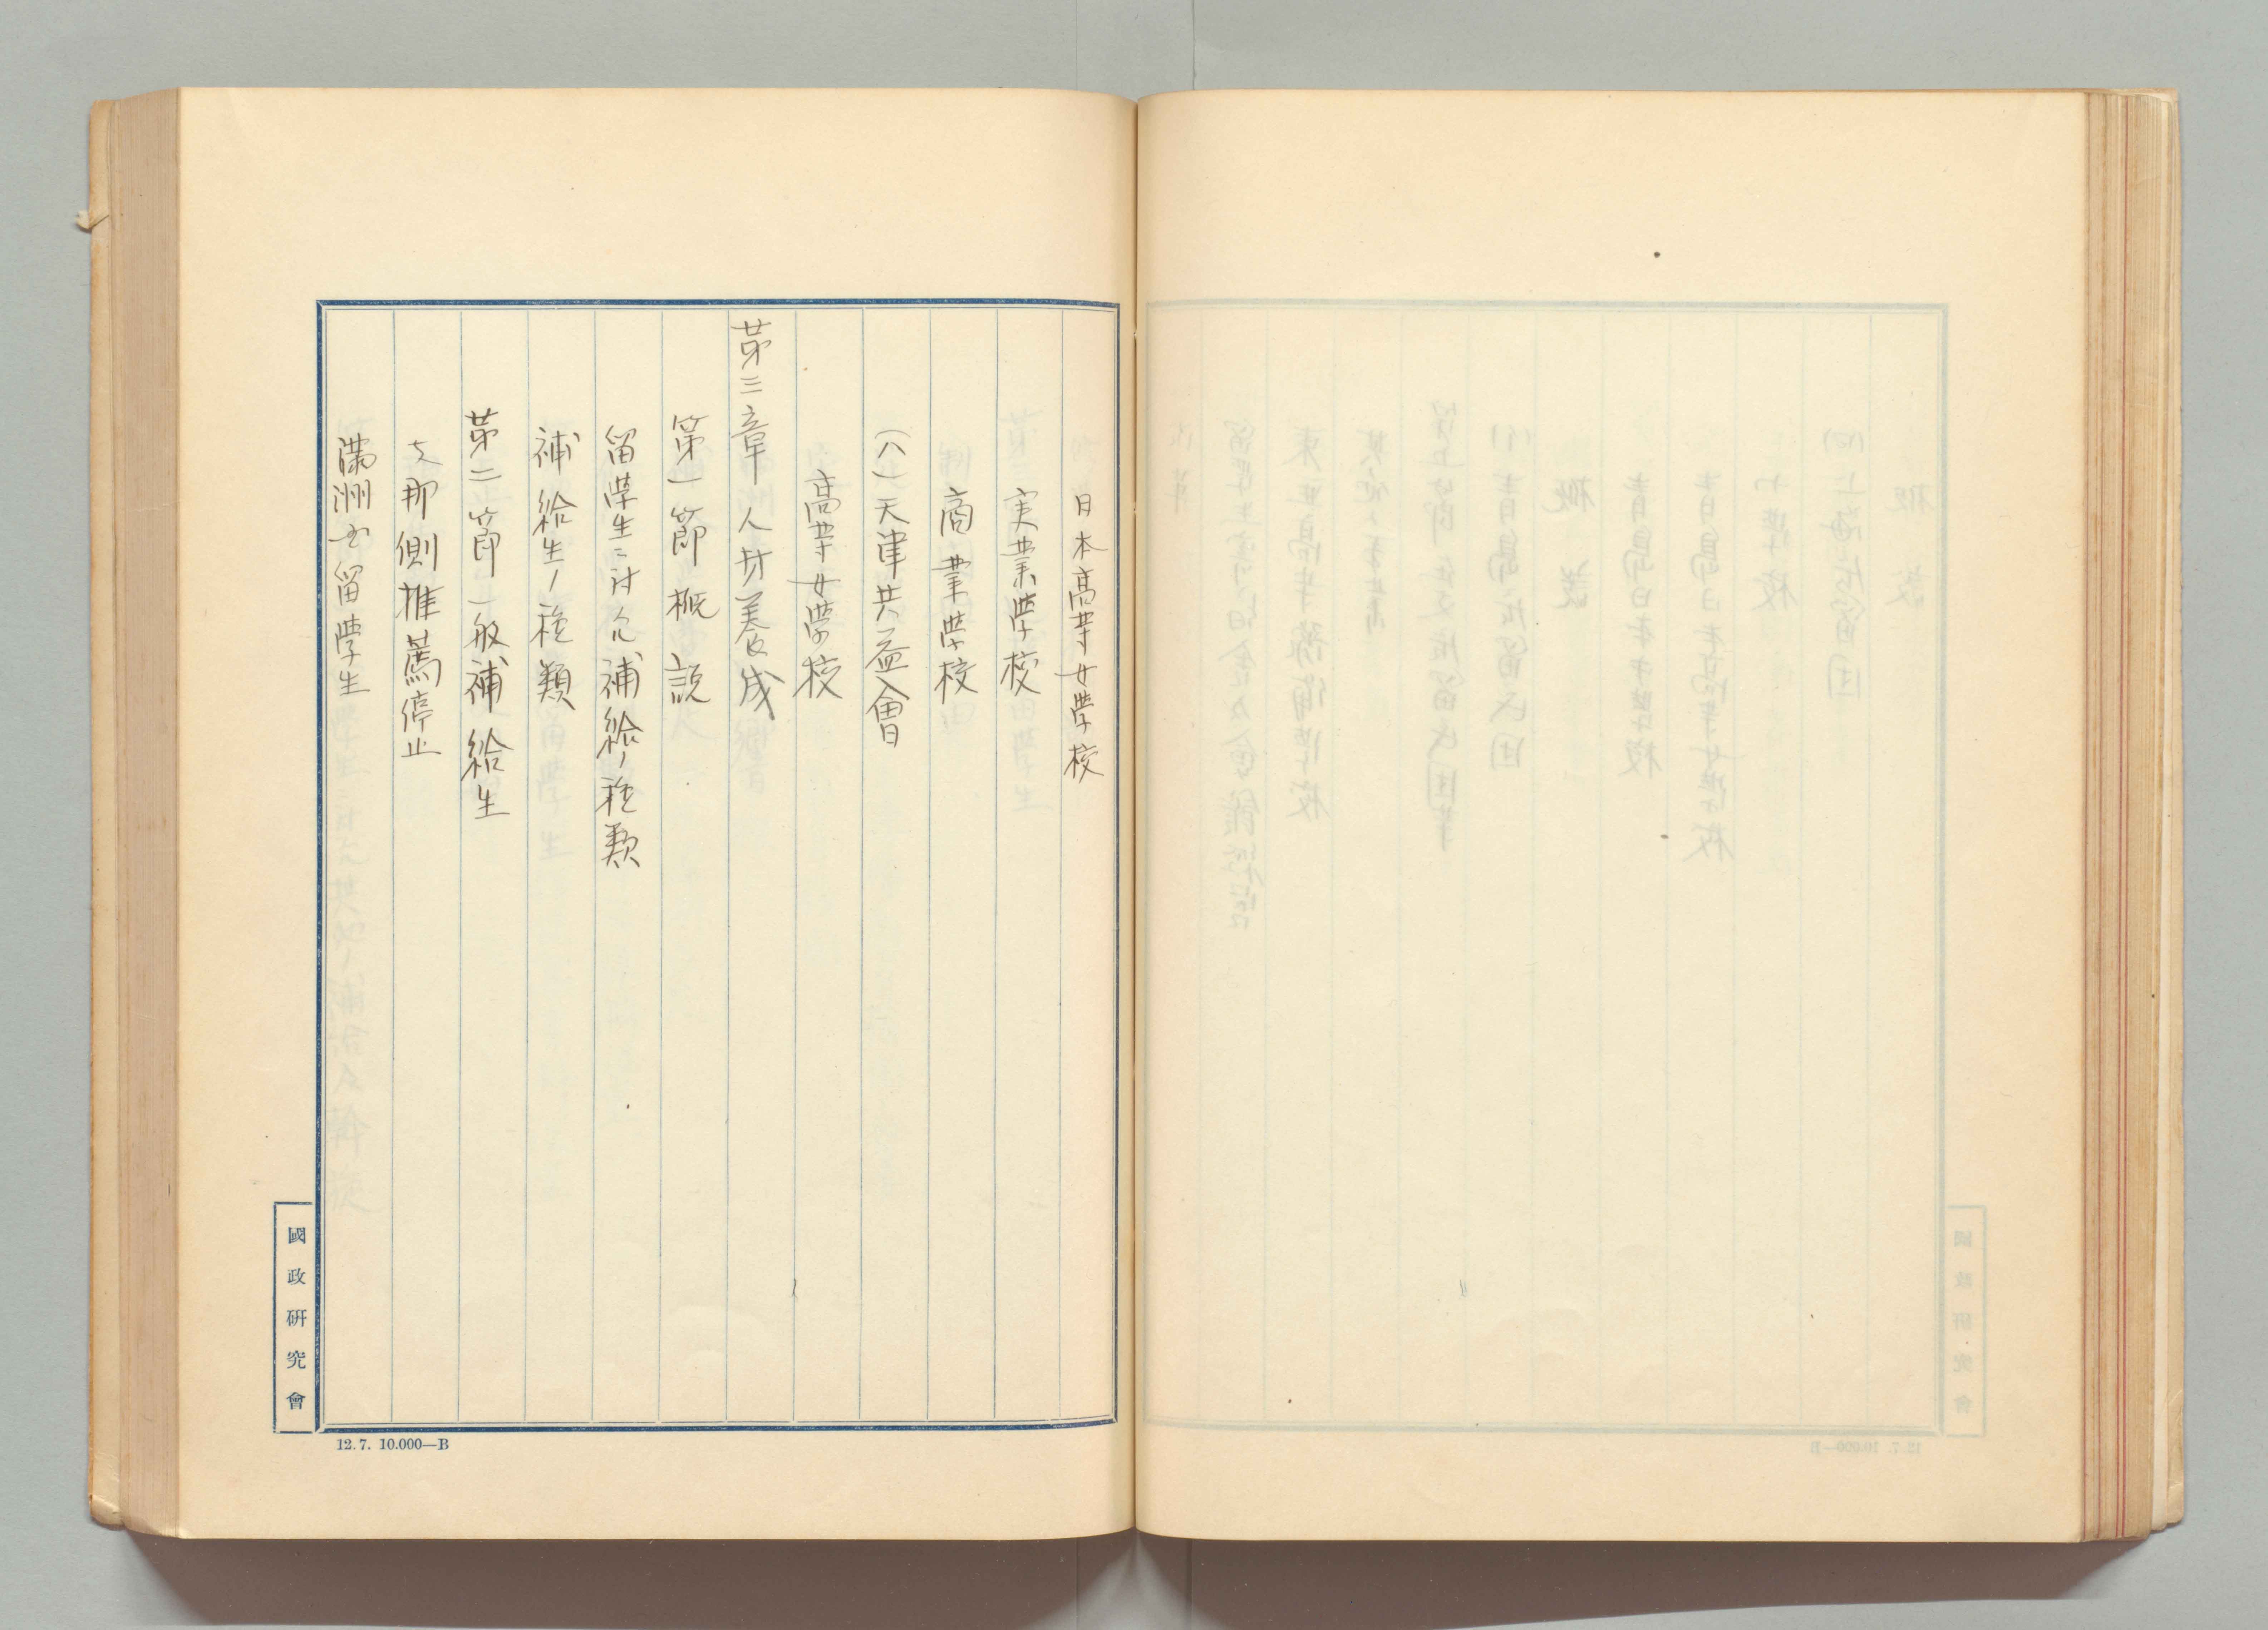 日本高等女学校
実業学校
商業学校
(八)天津共益會
高等女学校
第三章 人材養成
第一節 概説
留学生ニ対スル補給ノ種類
補給生ノ種類
第二節 一般補給生
支那側推薦停止
満洲国留学生
國政研究會
12.7. 10.000—B